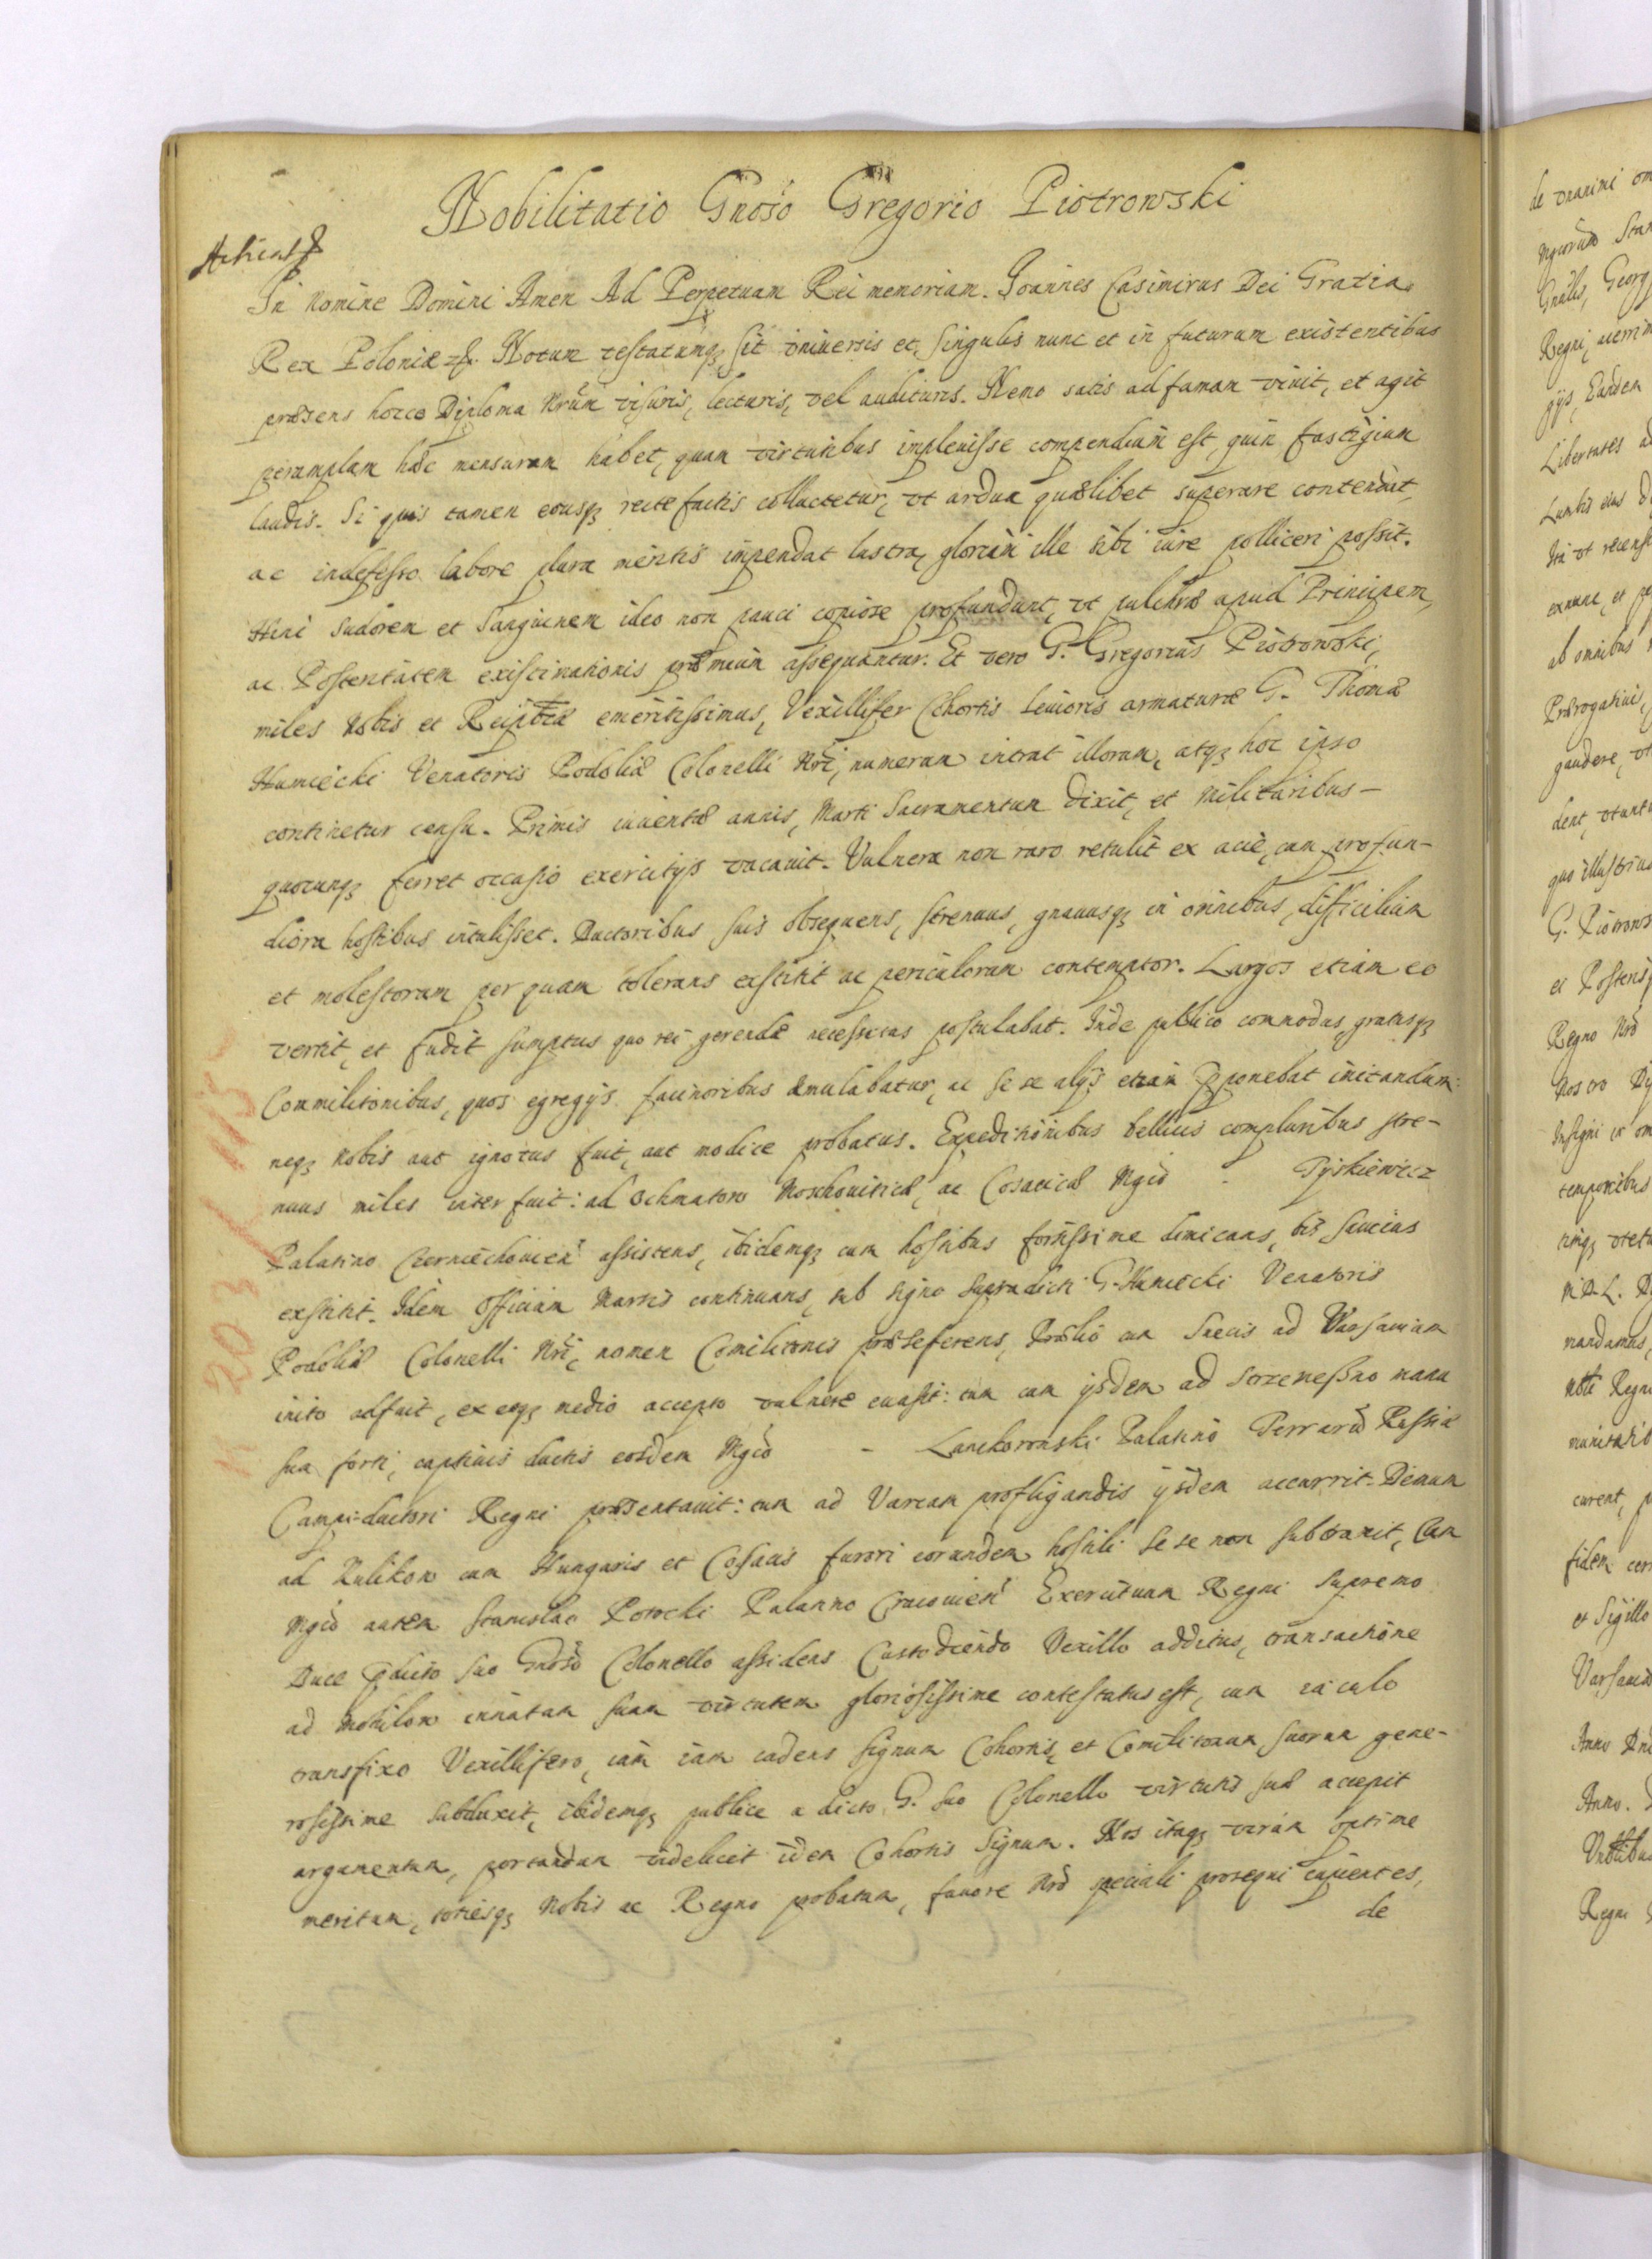 Nobilitatio Gnoso Gregorio Piotrowski
In Nomine Domini Amen Ad Perpetuam Rei memoriam. Joannes Casimirus Dei Gratia
Rex Poloniæ &. Notum testatumq; sit universis et singulis nunc et in futurum existentibus
præsens hocce Diploma Nrũm visuris, lecturis, vel audituris. Nemo satis ad famam vivit, et agit
peramplam hæc mensuram habet, quam virtutibus implevisse compendium est, quin fastigium
laudis. Si quis tamen eousq; recte factis colluctetur, vt ardua quælibet superare contendat,
ac indefesso labore plura meritis impendat lustra, gloriam ille sibi iure polliceri possit.
Hinc sudorem et sanguinem ideo non pauci copiose profundunt, vt pulchræ apud Principem,
ac Posteritatem existimationis præmium assequantur. Et vero G. Gregorius Piotrowski,
miles Nobis et Reipbcæ emeritissimus, Vexillifer Cohortis Levioris armaturæ G. Thomæ
Humiecki Venatoris Podoliæ Colonelli Nri, numerum intrat illorum, atq; hoc ipso
continetur censu. Primis iuventæ annis, Marti Sacramentum dixit, et Militaribus –
quocunq; ferret occasio exercitijs vacavit. Vulnera non raro retulit ex acie, cum profun-
diora hostibus intulisset. Ductoribus suis obsequens, strenuus, gnavusq; in omnibus, difficilium
et molestorum per quam tolerans exstitit ac periculorum contemptor. Largos etiam eo
vertit, et fudit sumptus quo rei gerendæ necessitas postulabat. Inde publico commodus, gratusq;
Commilitonibus, quos egregijs facinoribus æmulabatur, ac se se alijs etiam pponebat imitandum:
neq; Nobis aut ignotus fuit, aut modice probatus. Expeditionibus bellicis compluribus stre-
nuus miles interfuit: ad Ochmatow Moschoviticæ, ac Cosaticæ Mgco - Tyskiewicz
Palatino Czerniechovien assistens, ibidemq; cum hostibus fortissime dimicans, bis saucius
exstitit. Idem Officium Martis continuans, sub signo supradicti G. Humiecki Venatoris
Podoliæ Colonelli Nri, nomen Comilitonis præseferens, Prælio cum Suecis ad Varsaviam
inito adfuit, ex eoq; medio accepto vulnere evasit: tum cum ijsdem ad Strzemeszno manu
sua forti, captivis ductis eosdem Mgco - Lanckoronski Palatino Terrarũ Russiæ
Campi-ductori Regni præsentavit: tum ad Varcam profligandis ijsdem accurrit. Demum
ad Zulikow cum Hungaris et Cosacis furori eorundem hostili se se non subtraxit, Cum
Mgco autem Stanislao Potocki Palatino Cracovien Exercituum Regni Supremo
Duce pdicto suo Gnoso Colonello assidens Custodiendo Vexillo additus, transactione
ad Mohilow innatam suam virtutem gloriosissime contestatus est, cum iaculo
transfixo Vexillifero, iam iam cadens signum Cohortis, et Comilitonum suorum gene-
rosissime subduxit, ibidemq; publice a dicto G. suo Colonello virtutis suæ accepit
argumentum, portandum videlicet idem Cohortis Signum. Nos itaq; virum optime
meritum, totiesq; Nobis ac Regno probatum, favore Nro speciali prosequi cupientes,
de